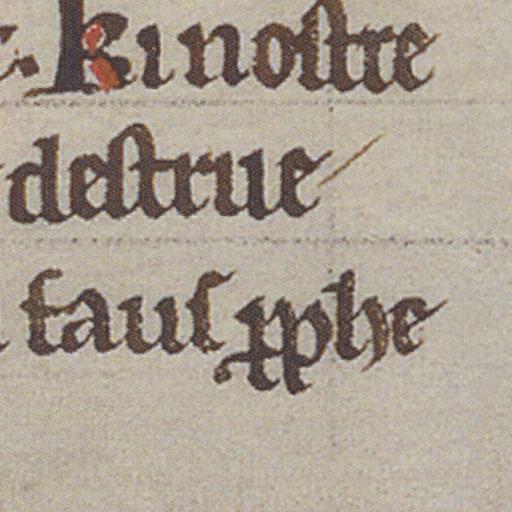 . Ki noſtre
deſtrue
fauſ ꝓphe